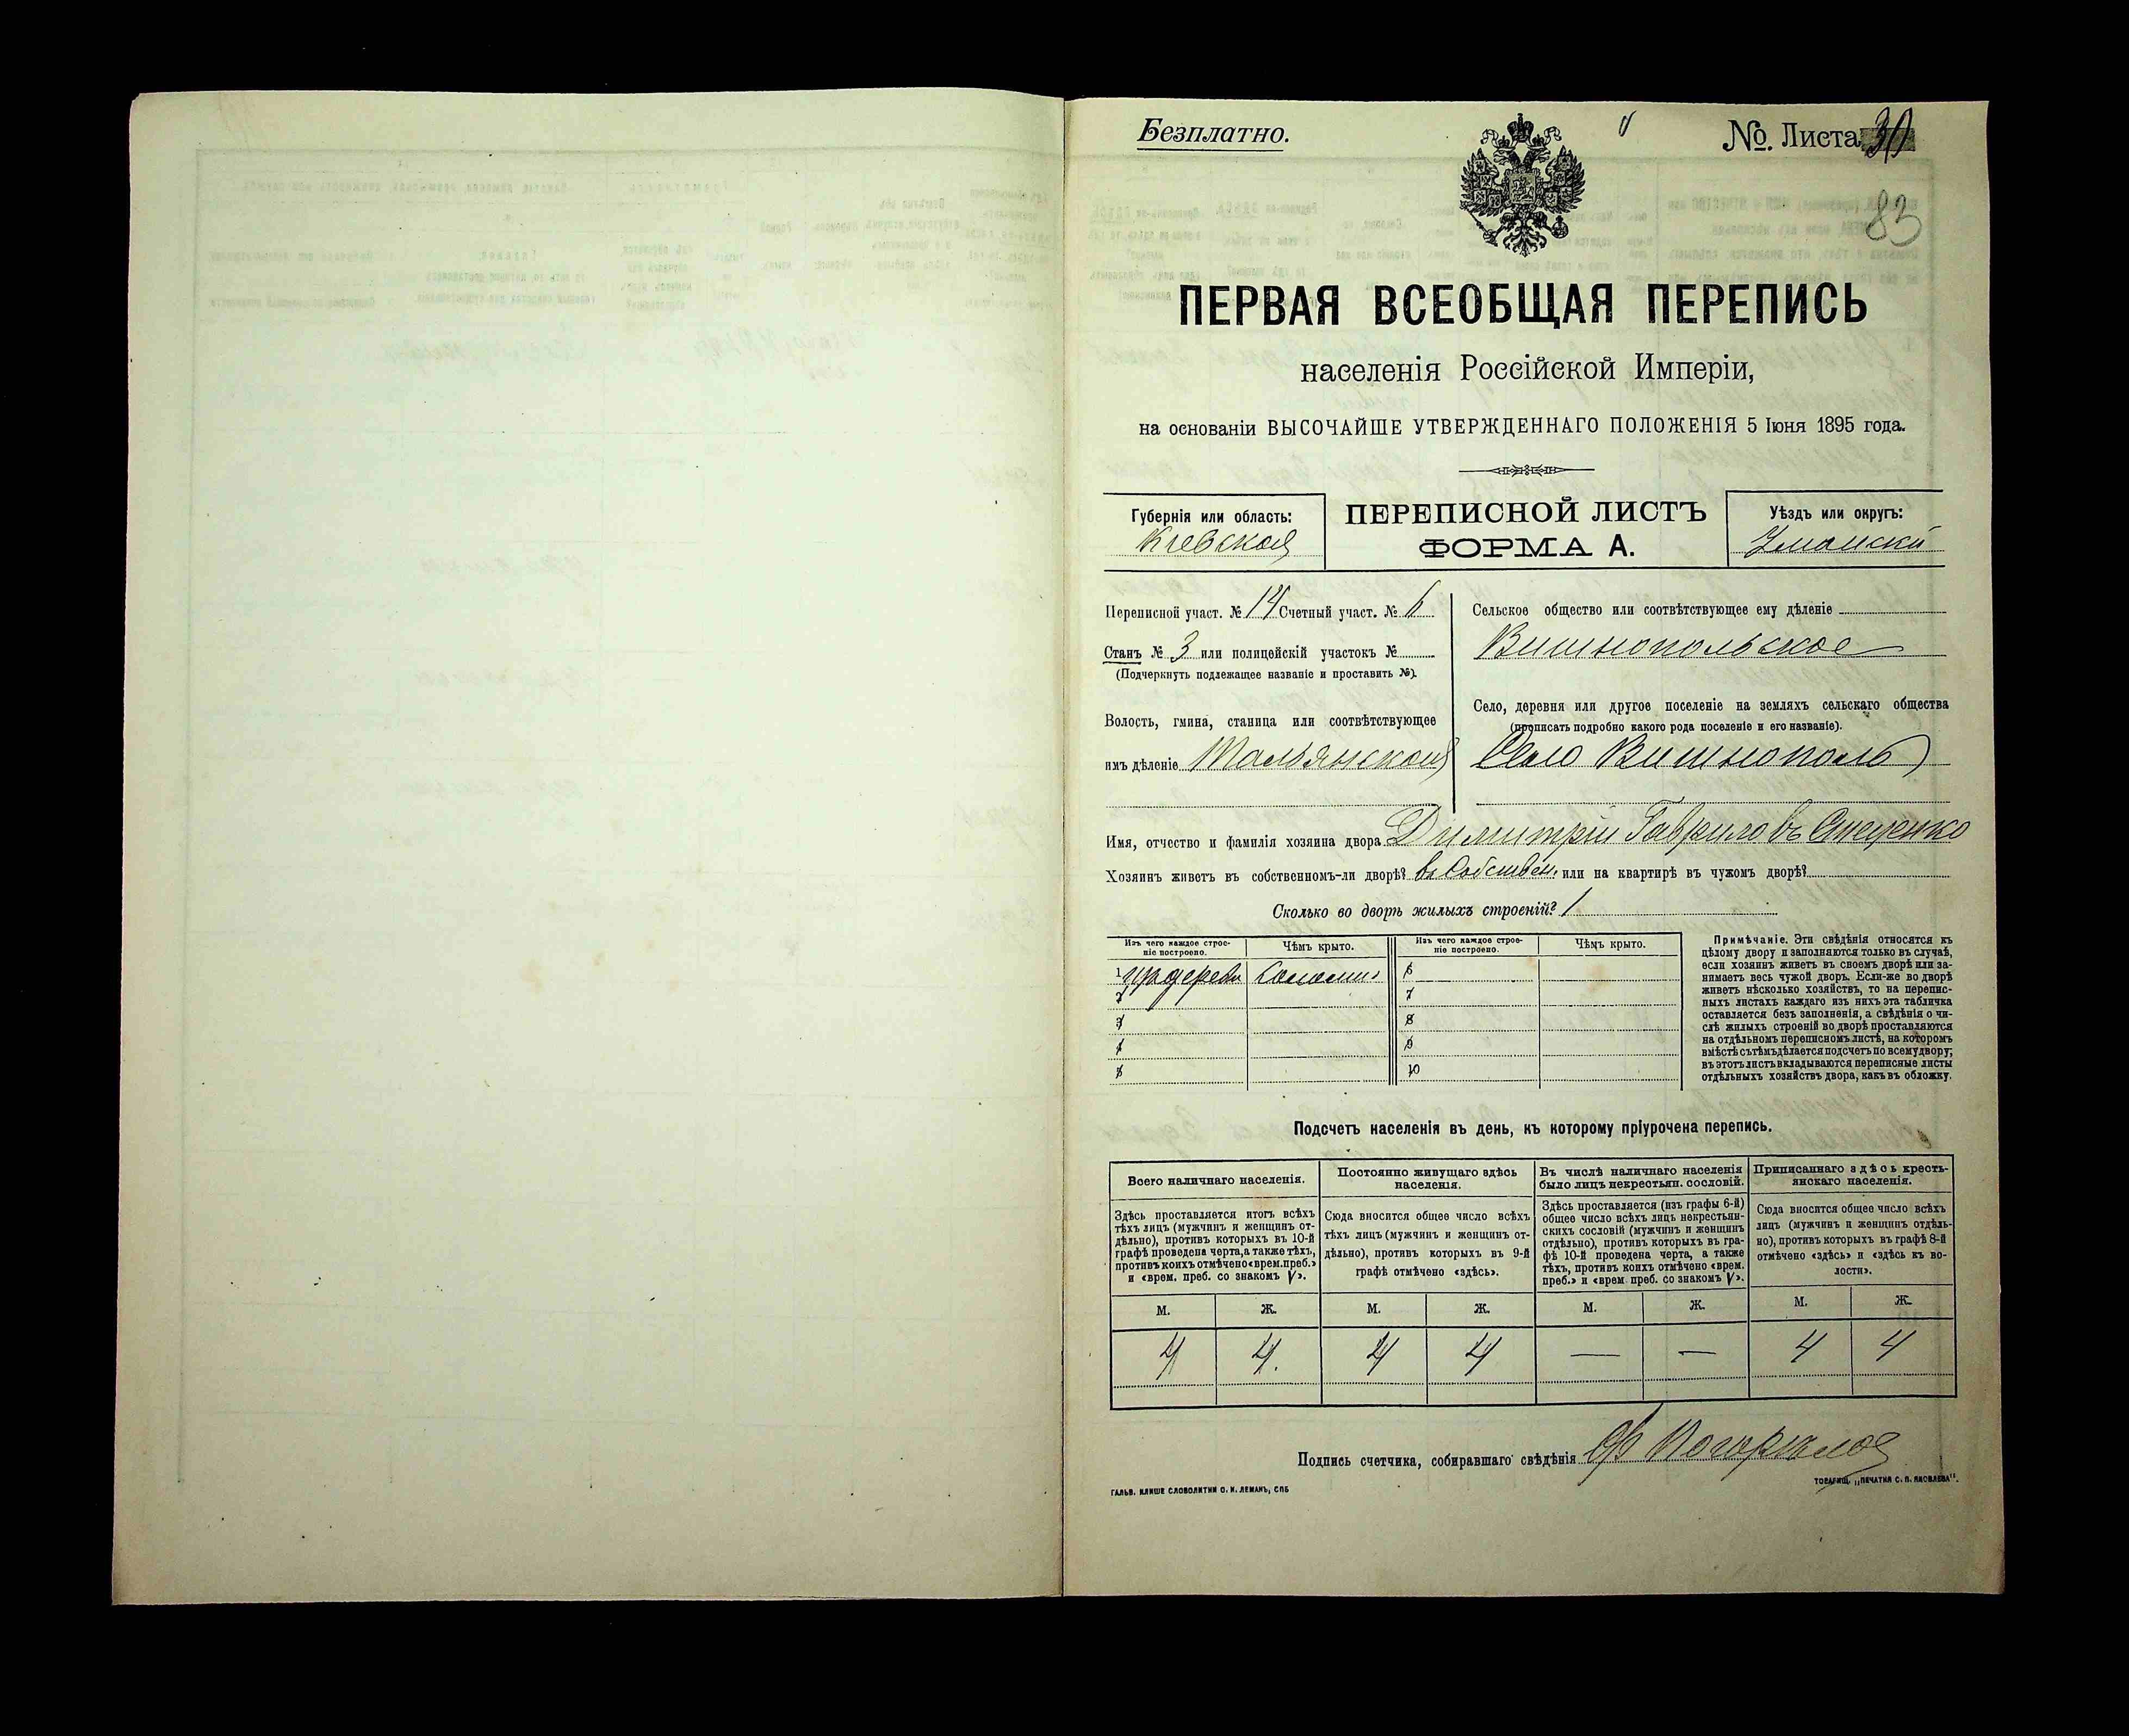 Безплатно.
№. Листа 30
83
ПЕРВАЯ ВСЕОБЩАЯ ПЕРЕПИСЬ
населенія Россійской Имперіи,
на основаніи ВЫСОЧАЙШЕ УТВЕРЖДЕННАГО ПОЛОЖЕНІЯ 5 Іюня 1895 года.
Губернія или область:
Кіевская
ПЕРЕПИСНОЙ ЛИСТЪ
ФОРМА А.
Уѣздъ или округъ:
Уманскій
Переписной участ. № 14 Счетный участ. № 6
Станъ № 3 или полицейскій участокъ №
(Подчеркнуть подлежащее названіе и проставить №).
Волость, гмина, станица или соотвѣтствующее
имъ дѣленіе Тальянская
Сельское общество или соотвѣтствующее ему дѣленіе
Вишнопольское
Село, деревня или другое поселеніе на земляхъ сельскаго общества
(прописать подробно какого рода поселеніе и его названіе).
Село Вишнополь
Имя, отчество и фамилія хозяина двора Димитрій Гавриловъ
Хозяинъ живетъ въ собственномъ-ли дворѣ? въ Собствен. или на квартирѣ въ чужомъ дворѣ?
Сколько во дворѣ жилыхъ строеній? 1
Изъ чего каждое строе-
ніе построено.
Чѣмъ крыто.
Изъ чего каждое строе-
ніе построено.
Чѣмъ крыто.
1 дерева Соломою 6
2 7
3 8
4 9
5 10
Примѣчаніе. Эти свѣдѣнія относятся къ
цѣлому двору и заполняются только въ случаѣ,
если хозяинъ живетъ въ своемъ дворѣ или за-
нимаетъ весь чужой дворъ. Если-же во дворѣ
живетъ нѣсколько хозяйствъ, то на перепис-
ныхъ листахъ каждаго изъ нихъ эта табличка
оставляется безъ заполненія, а свѣдѣнія о чи-
слѣ жилыхъ строеній во дворѣ проставляются
на отдѣльномъ переписномъ листѣ, на которомъ
вмѣстѣ съ тѣмъ дѣлается подсчетъ по всему двору;
въ этотъ листъ вкладываются переписные листы
отдѣльныхъ хозяйствъ двора, какъ въ обложку.
Подсчетъ населенія въ день, къ которому пріурочена перепись.
Всего наличнаго населенія.
Здѣсь проставляется итогъ всѣхъ
тѣхъ лицъ (мужчинъ и женщинъ от-
дѣльно), противъ которыхъ въ 10-й
графѣ проведена черта, а также тѣхъ,
противъ коихъ отмѣчено «врем. преб.»
и «врем. преб. со знакомъ V».
Постоянно живущаго здѣсь
населенія.
Сюда вносится общее число всѣхъ
тѣхъ лицъ (мужчинъ и женщинъ от-
дѣльно), противъ которыхъ въ 9-й
графѣ отмѣчено «здѣсь».
Въ числѣ наличнаго населенія
было лицъ некрестьян. сословій.
Здѣсь проставляется (изъ графы 6-й)
общее число всѣхъ лицъ некрестьян-
скихъ сословій (мужчинъ и женщинъ
отдѣльно), противъ которыхъ въ гра-
фѣ 10-й проведена черта, а также
тѣхъ, противъ коихъ отмѣчено «врем.
преб.» и «врем преб. со знакомъ V».
Приписаннаго здѣсь кресть-
янскаго населенія.
Сюда вносится общее число всѣхъ
лицъ (мужчинъ и женщинъ отдѣль-
но), противъ которыхъ въ графѣ 8-й
отмѣчено «здѣсь» и «здѣсь къ во-
лости».
М. Ж. М. Ж. М. Ж. М. Ж.
4 4. 4 4 — — 4 4
Подпись счетчика, собиравшаго свѣдѣнія
ГАЛЬВ. КЛИШЕ СЛОВОЛИТНИ О. И. ЛЕМАНЪ, СПБ
ТОВАРИЩ. „ПЕЧАТНЯ С. П. ЯКОВЛЕВА".